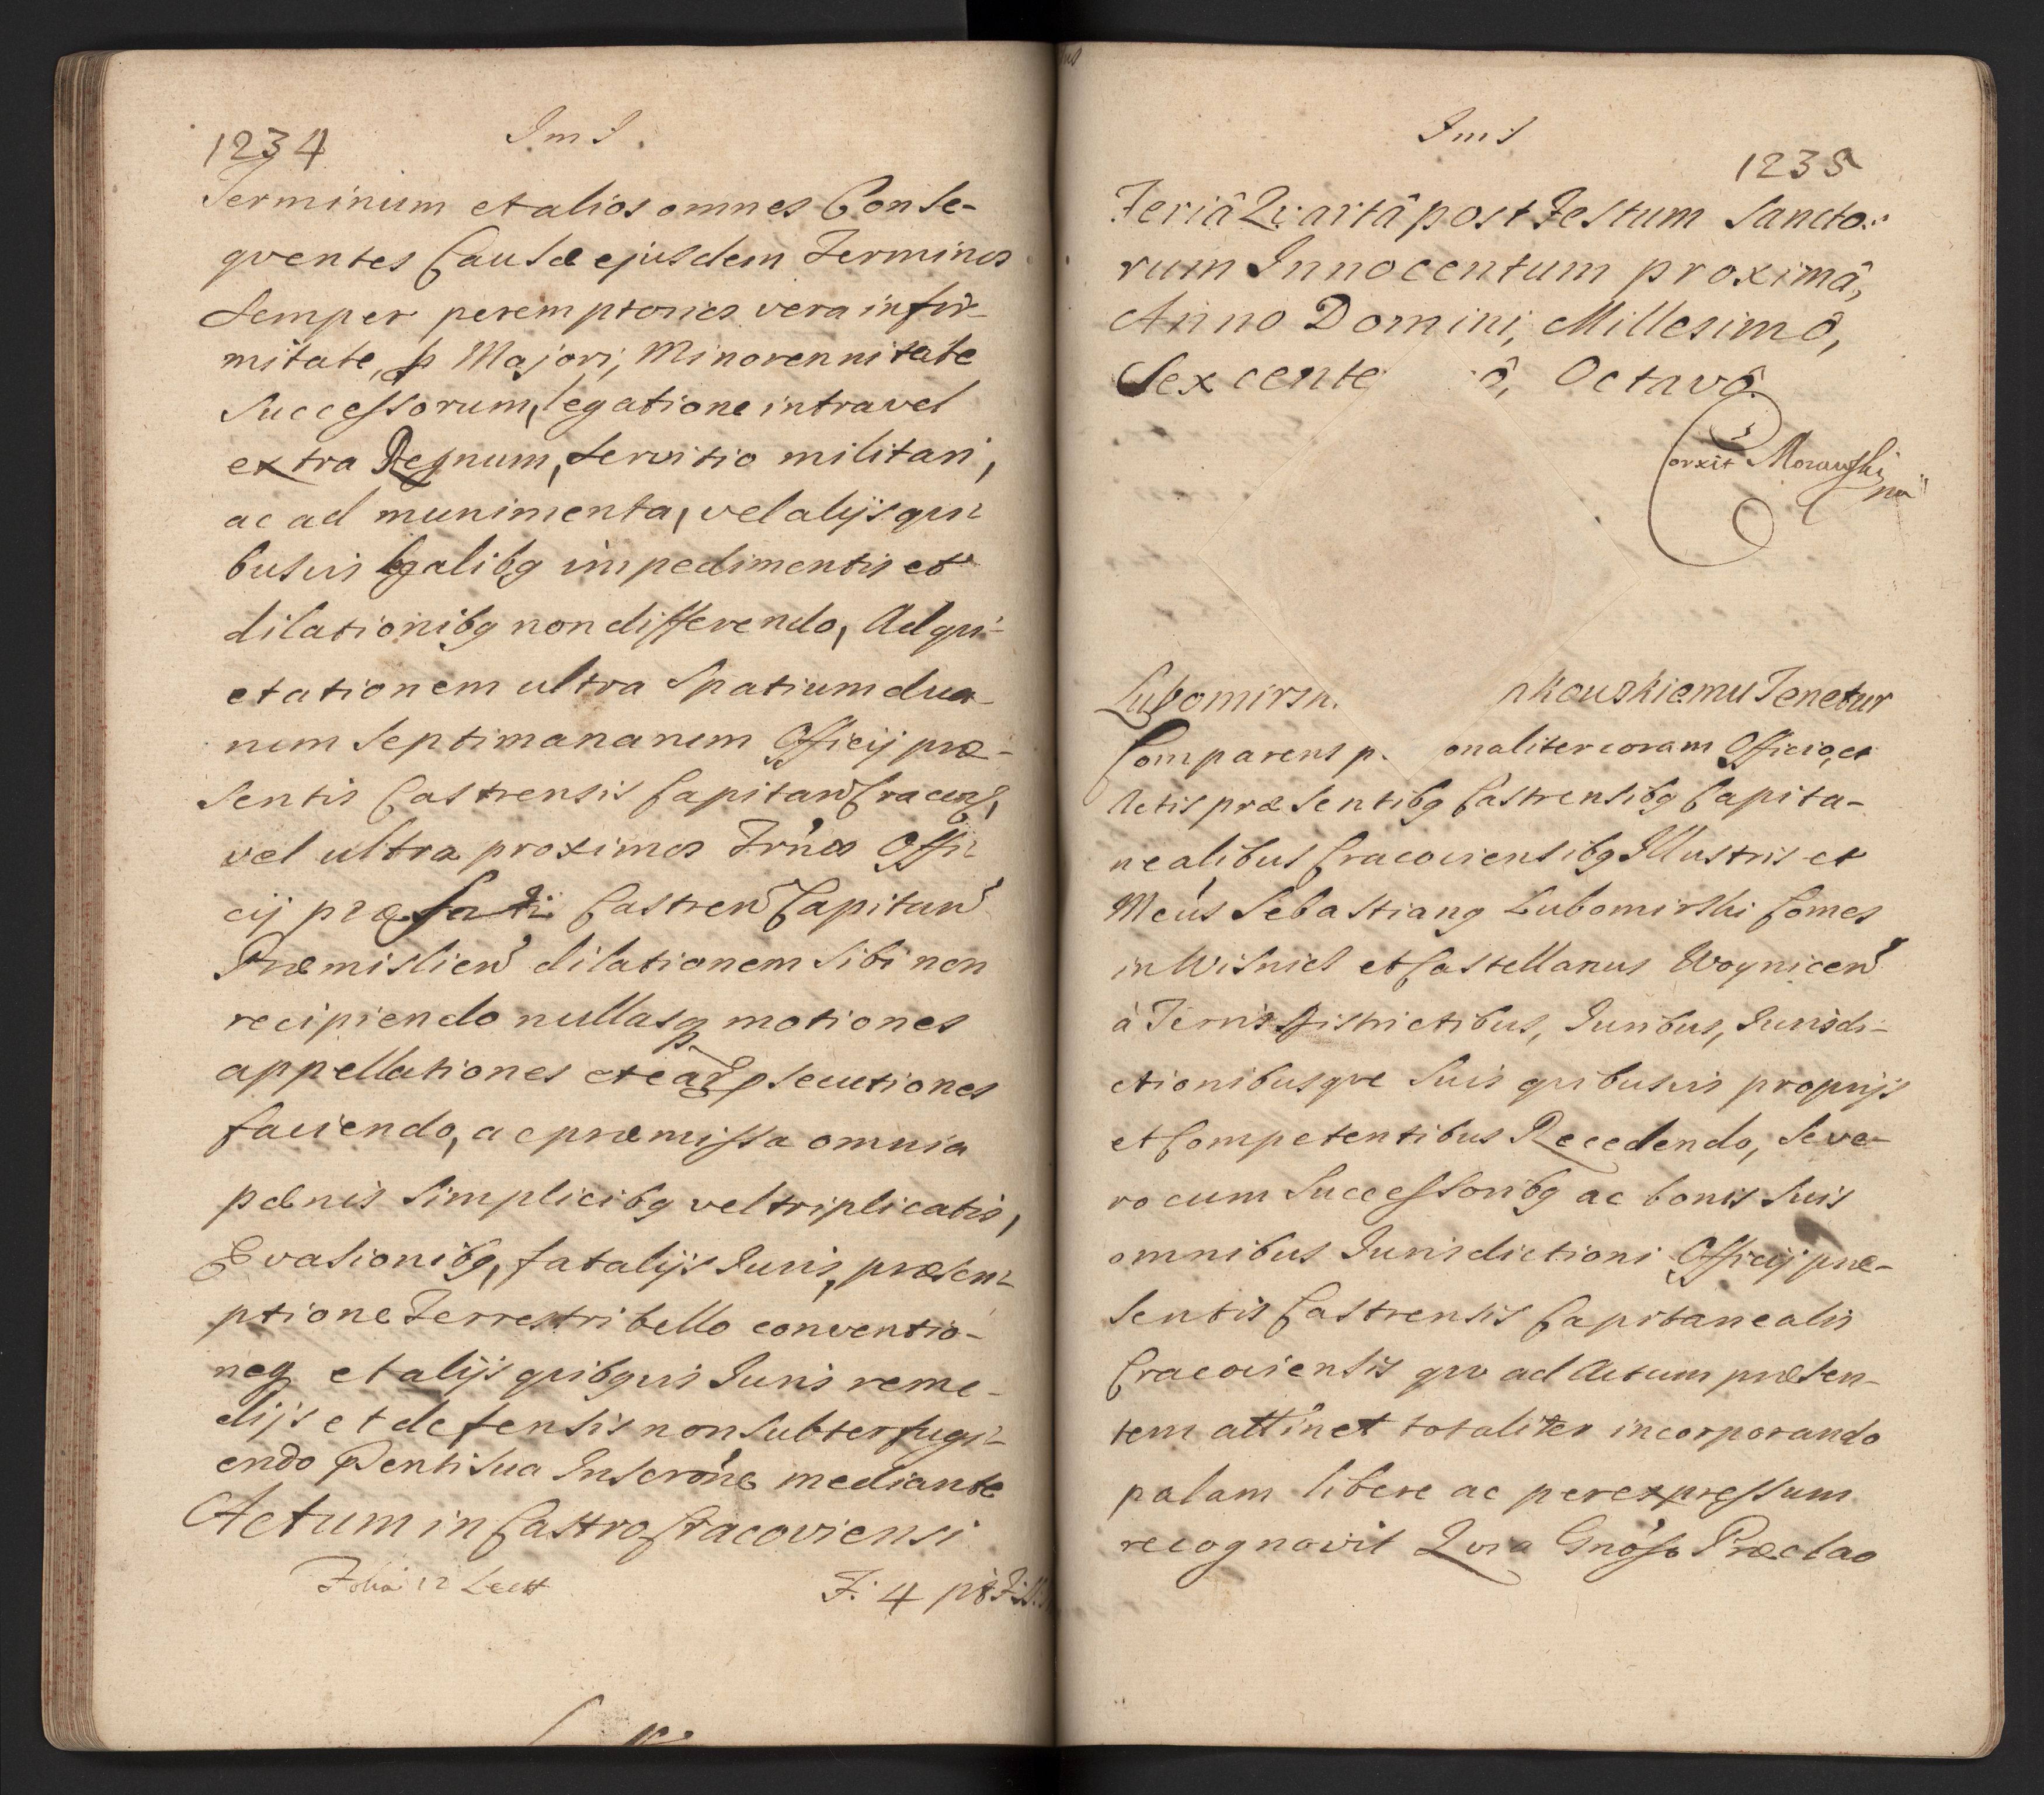 1234
Im I.
Terminum et alios omnes Conse-
qventes Causæ ejusdem Terminos
Semper peremptorios vera infir-
mitate, p Majori, Minorennitate
Successorum, legatione intra vel
extra Regnum, Servitio militari,
ac ad munimenta, vel alijs qui-
busvis legalibq impedimentis et
dilationibq non differendo, Ad qui-
etationem ultra Spatium dua-
rum Septimanarum Officij præ-
sentis Castrensis Capitan Cracen,
vel ultra proximos Trnos Offi-
cij præfati Castren Capitan
Præmislien dilationem Sibi non
recipiendo nullasq motiones
appellationes et eaq psecutiones
faciendo, ac præmissa omnia
pænis Simplicibq vel triplicatis,
Evasionibq, fatalijs Juris, præscri-
ptione Terrestri bello conventio-
neq et alijs qvibqvis Juris reme-
dijs et defensis non Subterfugi-
endo Penti Sua Inscrone mediante
Actum in Castro Cracoviensi
F: 4 pt F: SS:
Im I
1235
Feriâ Qvartâ post Festum Sancto:
rum Innocentum proximâ,
Anno Domini, Millesimô,
Sexcente ô, Octavô.
Corxit Morawski
mp
Lubomirsk. nkowskiemu Tenetur
Comparens p. onaliter coram Officio, et
Actis præsentibq Castrensibq Capita-
nealibus Cracoviensibq Illustris et
Mcus Sebastianq Lubomirski Comes
in Wisnicz et Castellanus Woynicen
à Terris Districtibus, Juribus, Jurisdi-
ctionibusqve Suis qvibusvis proprijs
et Competentibus Recedendo, Seve-
ro cum Successoribq ac bonis Suis
omnibus Jurisdictioni Officij præ-
sentis Castrensis Capitanealis
Cracoviensis qvo ad Actum præsen-
tem attinet totaliter incorporando
palam libere ac per expressum
recognovit Qvia Gnoso Præclao